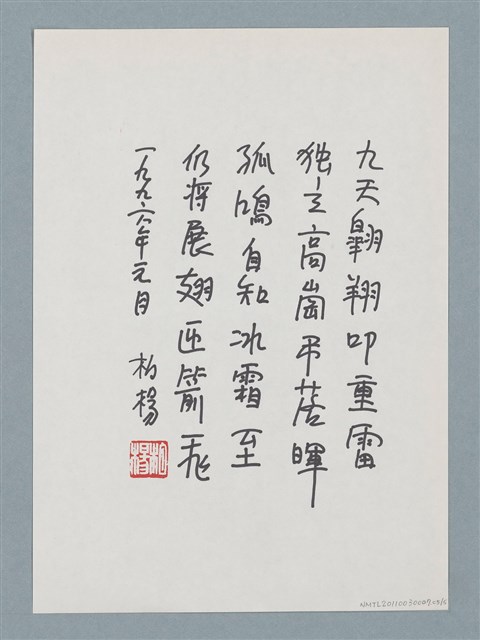 九天翱翔叩重雷
独立高崗吊落暉
孤鴻自知冰霜至
仍将展翅迎箭飛
一九九六年元月 柏楊
柏楊